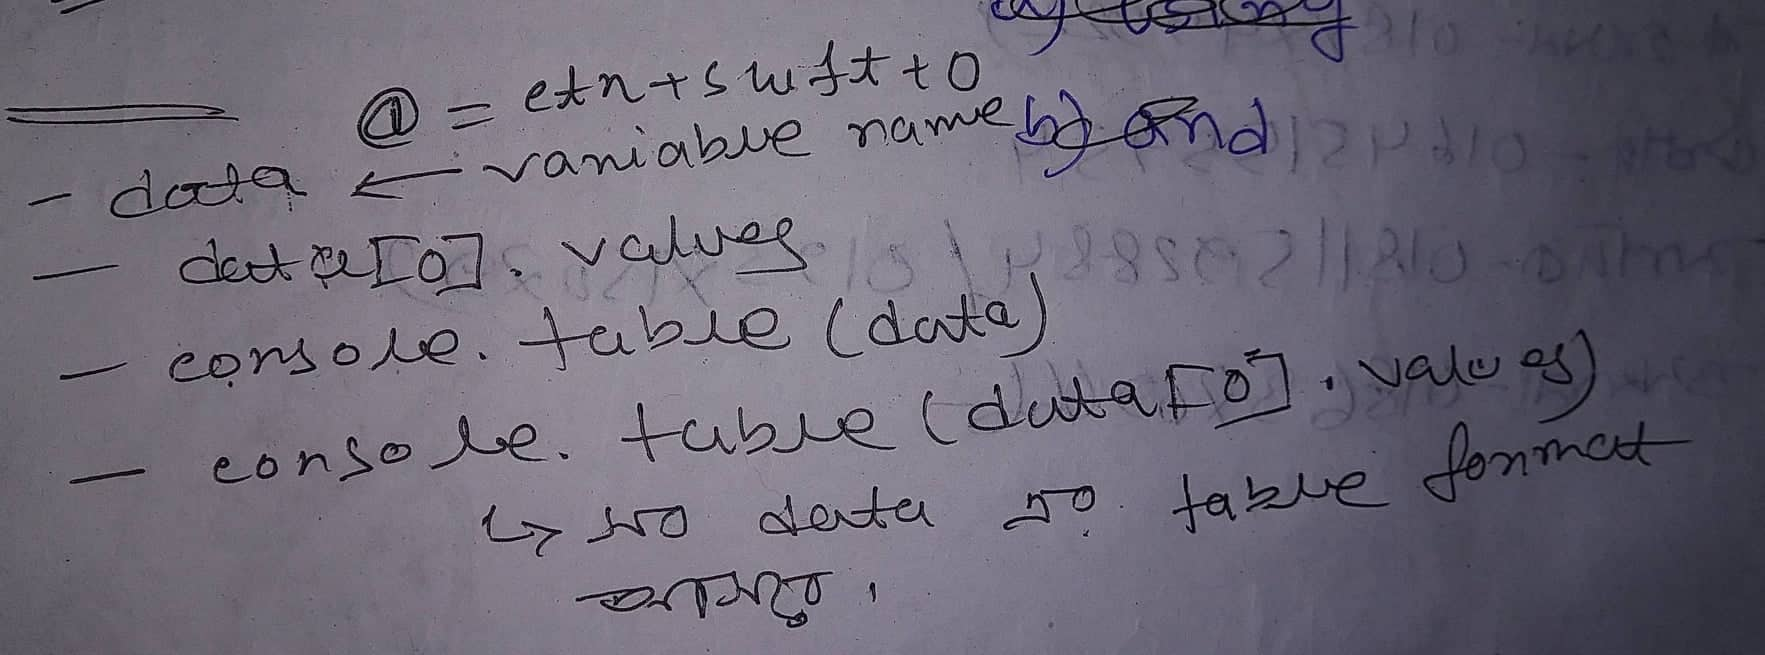 by using
@ = ctn + swft + 0
- data ← variable name by and
- data[0]. values
- console. table (data)
- console. table (data[0]. values)
↳ data table format
আসবে।